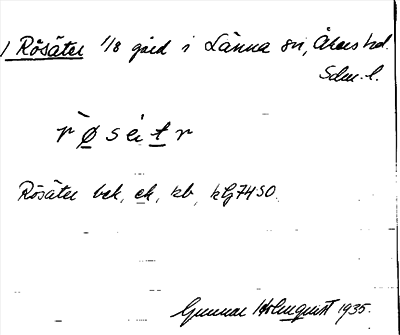 / Rösäter 1/8 gård i Länna sn, Åkers hd.
Sdm. l.
r ø̀ s e t r
Rösäter bek, ek, kb, kG7450.
Gunnar Holmquist 1935.